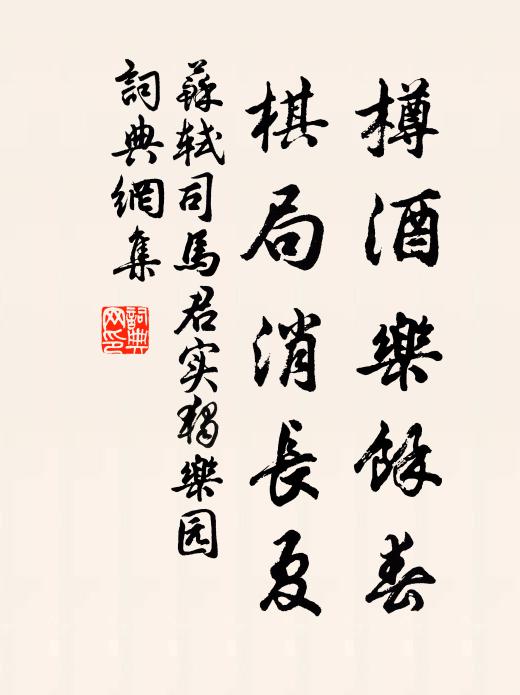 樽酒樂餘春
棋局消長夏
蘇軾司馬君实獨樂园
詞典網集
詞典网印